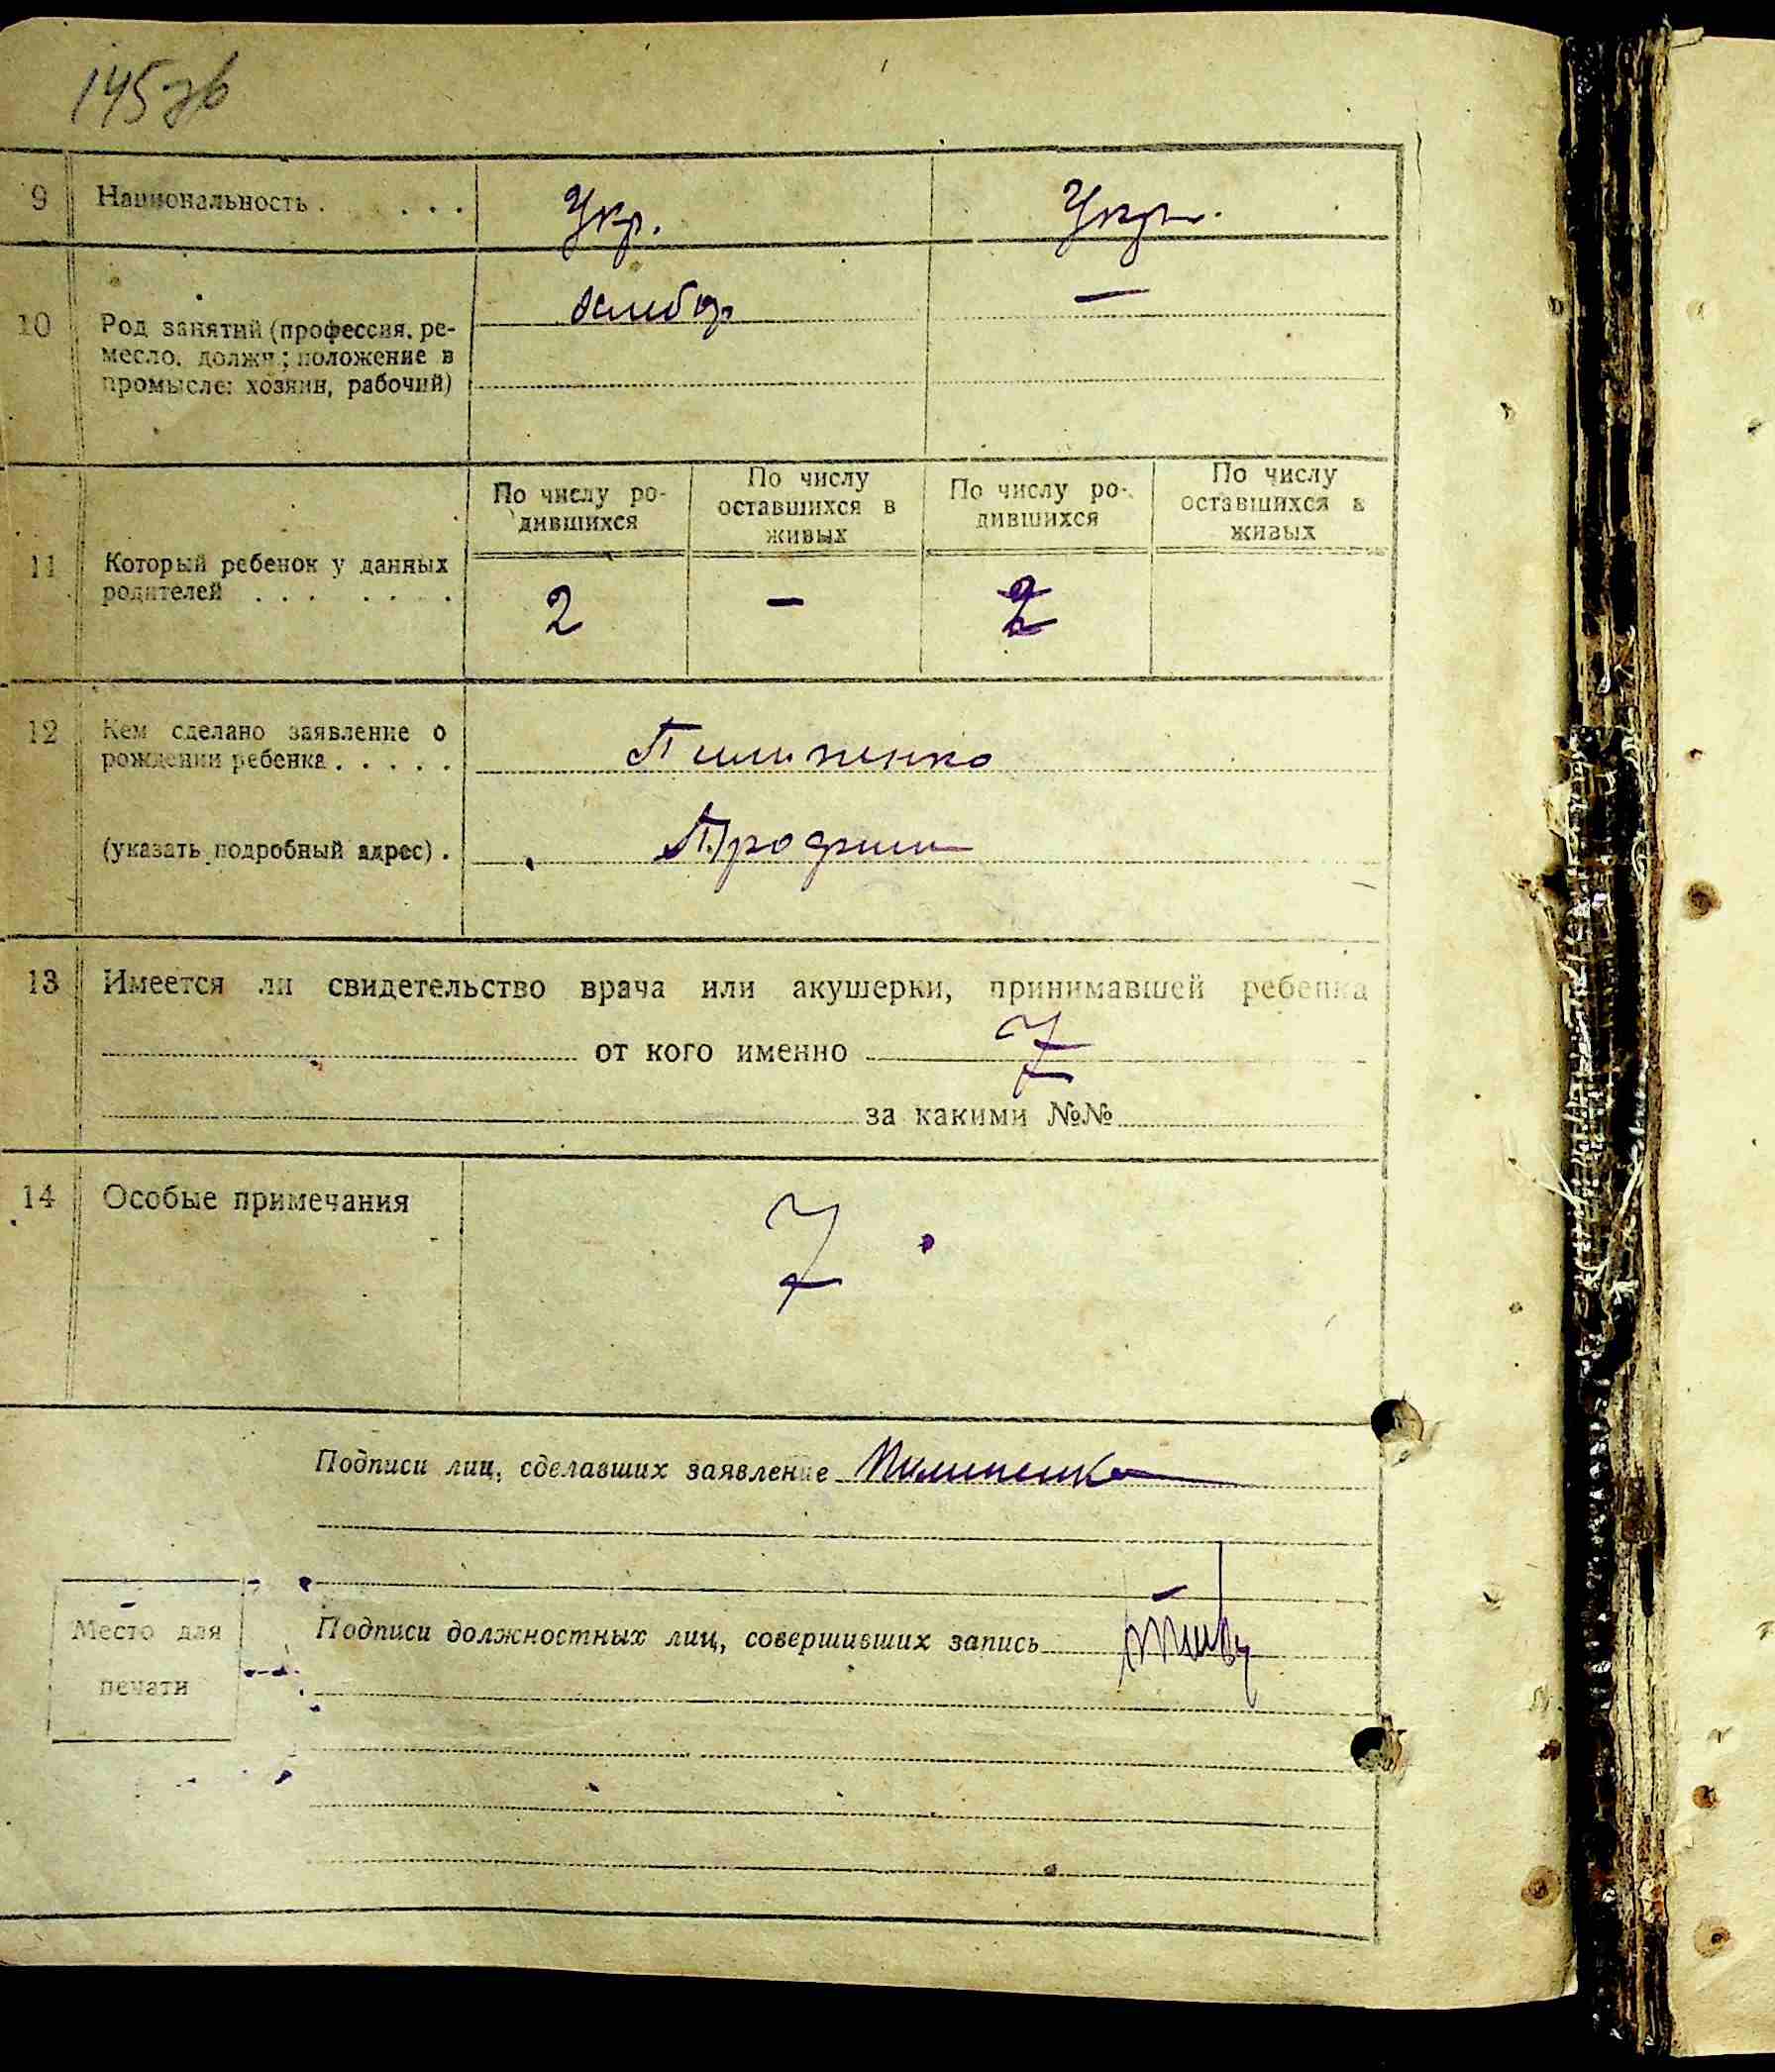 145 зв
9 Национальность . . . . Укр. Укр.
10 Род занятий (профессия, ре-
месло, должн.; положение в
промысле: хозяин, рабочий)
—
По числу ро-
дившихся
По числу
оставшихся в
живых
По числу ро-
дившихся
По числу
оставшихся в
живых
11 Который ребенок у данных
родителей . . . . . . 2 – 2
12 Кем сделано заявление о
рождении ребенка . . . . . Пилипенко
(указать подробный адрес) . Трофим
13 Имеется ли свидетельство врача или акушерки, принимавшей ребенка
от кого именно
за какими №№
14 Особые примечания
Подписи лиц, сделавших заявление Пилипенко
Место для
печати
Подписи должностных лиц, совершивших запись